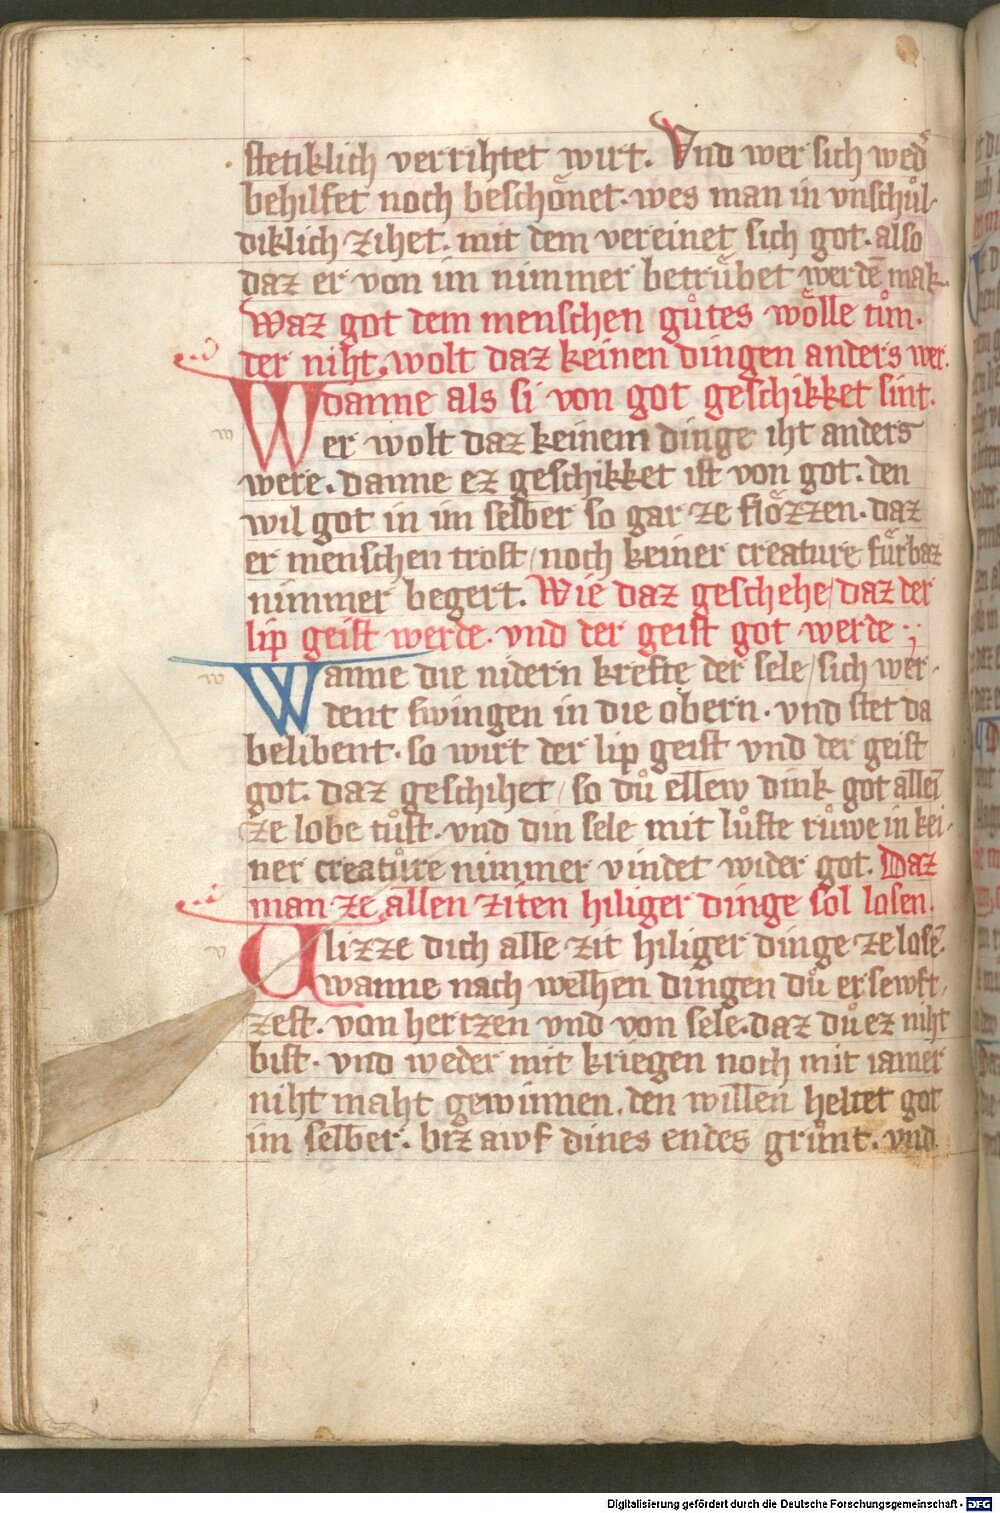 stetiklich verrihtet wirt. Vnd wer sich wed᷎
behilfet noch beschoͤnet. wes man in vnschul-
diklich zihet. mit dem vereinet sich got. also
daz er von im nimmer betruͤbet werdē mak.
Waz got dem menschen guͦtes woͤlle tuͦn.
der niht wolt daz keinen dingen anders wer.
danne als si von got geschikket sint.
Wer wolt daz keinem dinge iht anders
were. danne ez geschikket ist von got. den
wil got in im selber so gar ze floͤzzen. daz
er menschen trost / noch keiner creature fuͤrbaz
nimmer begert. Wie daz geschehe / daz der
lip geist werde. vnd der geist got werde
Wanne die nidern krefte der sele / sich wer-
dent swingen in die obern. vnd stet da
belibent. so wirt der lip geist vnd der geist
got. daz geschihet / so duͦ ellew dink got allei᷎
ze lobe tuͦst. vnd din sele mit luͦste ruͦwe in kei-
ner creatuͦre nimmer vindet wider got. Daz
man ze allen ziten hiliger dinge sol losen.
Vlizze dich alle zit hiliger dinge ze losē.
wanne nach welhen dingen duͦ ersewft-
zest. von hertzen vnd von sele. daz duͦ ez niht
bist. vnd weder mit kriegen noch mit iamer
niht maht gewinnen. den willen heltet got
im selber. biz awf dines endes gruͦnt. vnd
Digitalisierung gefördert durch die Deutsche Forschungsgemeinschaft - DFG